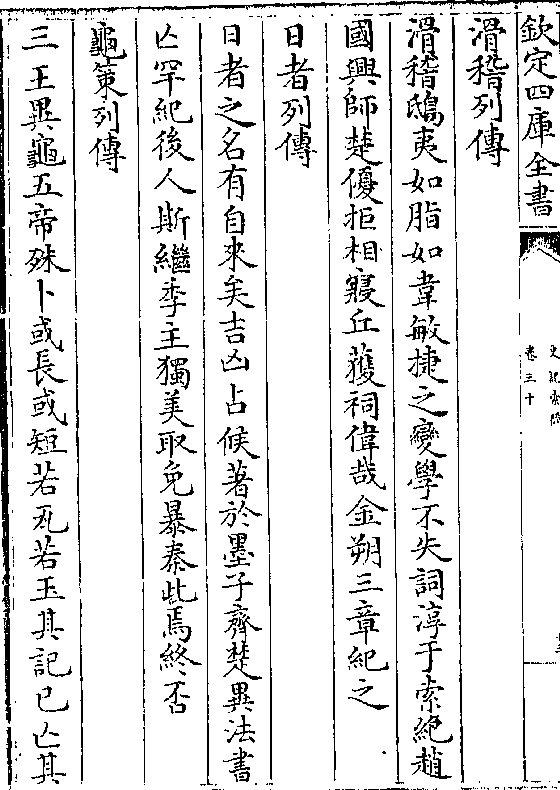 欽定四庫全書
史記索隱
卷三十
滑稽列傳
滑稽鴟夷如脂如韋敏捷之變學不失詞淳于索絶趙
國興師楚優拒相寢丘獲祠偉哉金朔三章紀之
日者列傳
日者之名有自來矣吉凶占候著於墨子齊楚異法書
亡罕紀後人斯繼季主獨美取免暴秦此焉終否
龜策列傳
三王異龜五帝殊卜或長或短若瓦若玉其記已亡其